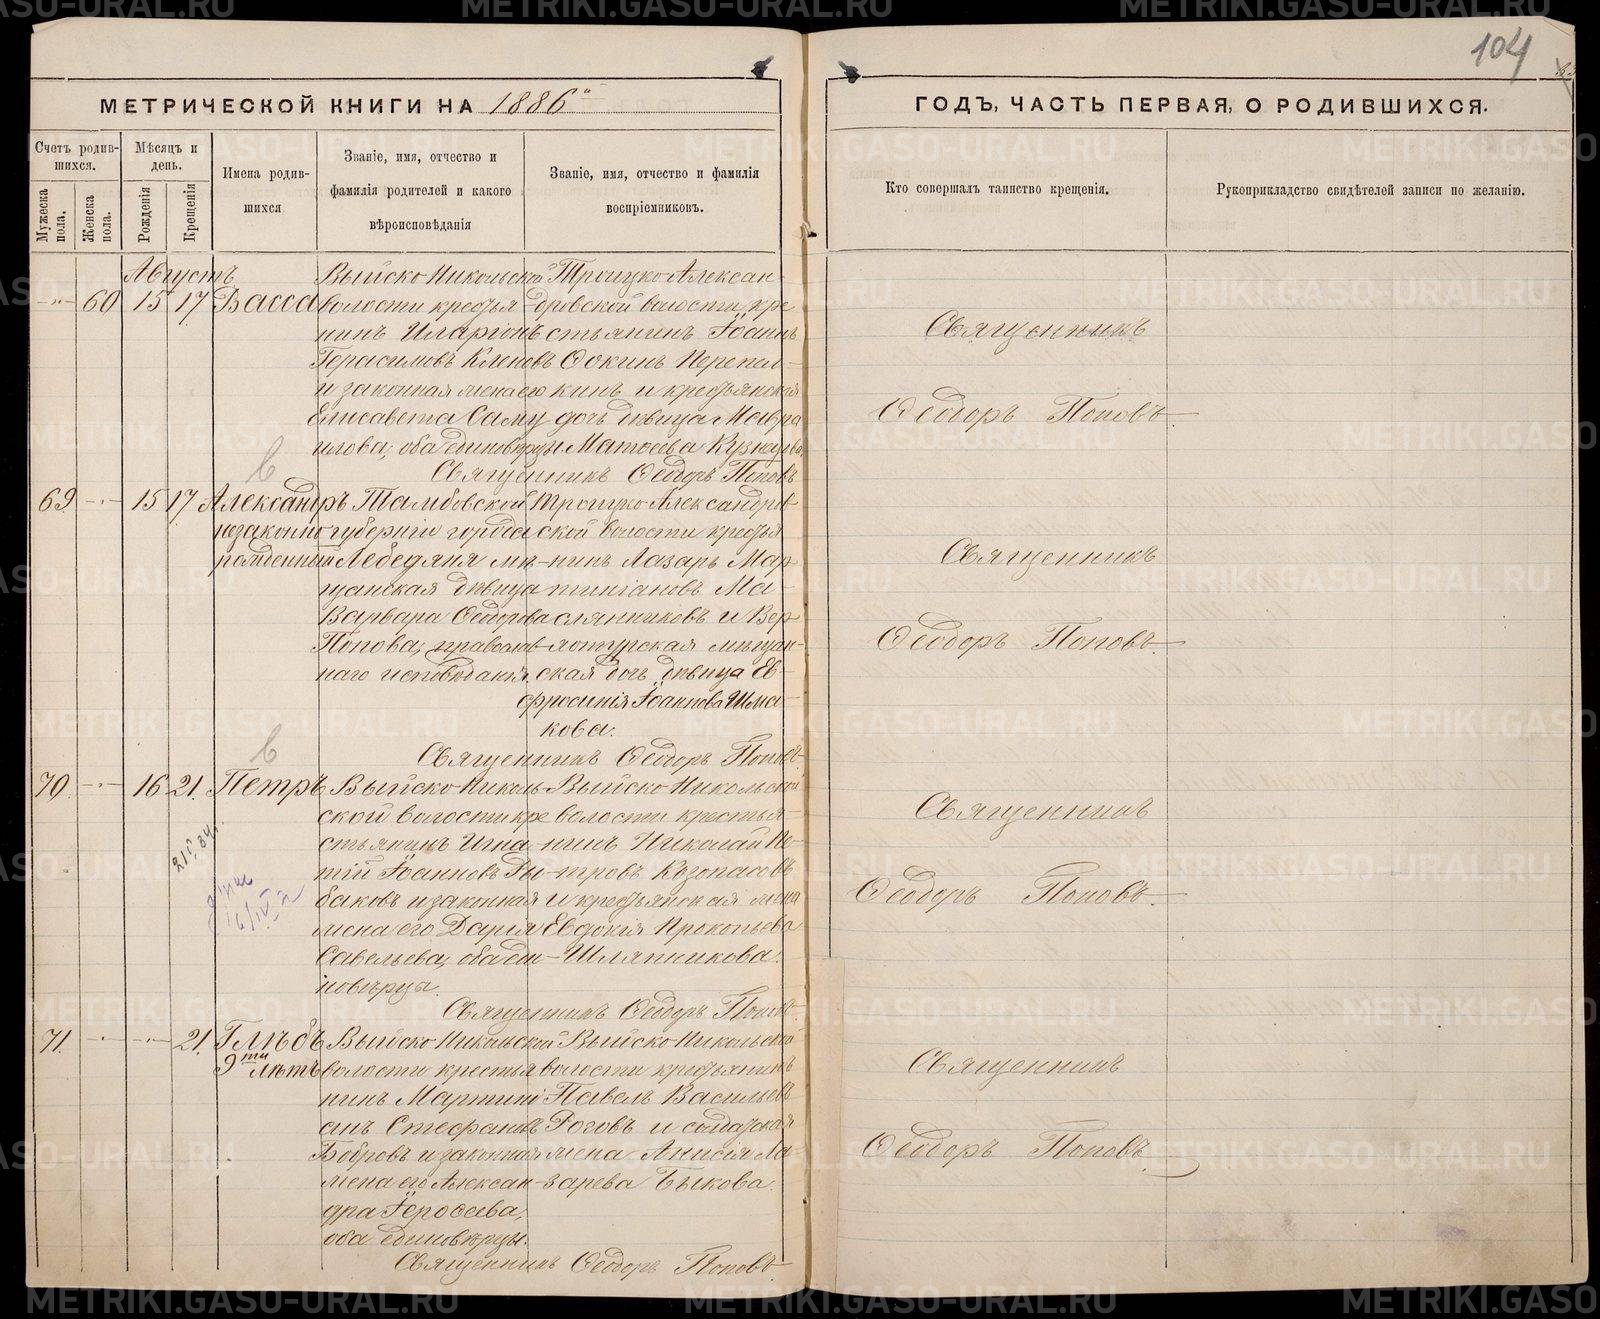 104
МЕТРИЧЕСКОЙ КНИГИ НА 1886й
ГОДЪ, ЧАСТЬ ПЕРВАЯ, О РОДИВШИХСЯ.
Счетъ родив-
шихся.
Мужеска пола.
Женска пола.
Мѣсяцъ и
день.
Рожденія
Крещенія
Имена родив-
шихся
Званіе, имя, отчество и
фамилія родителей и какого
вѣроисповѣданія
Званіе, имя, отчество и фамилія
воспріемниковъ.
Кто совершалъ таинство крещенія.
Рукоприкладство свидѣтелей записи по желанію.
Августъ
-"- 60 15 17 Васса
Выйско Никольской
волости крестья
нинъ Иларіонъ
Герасимовъ Клеповъ
и законная жена его
Елисавета Саму
илова, оба единовѣрцы
Троицко Алексан-
дровской волости кре
стьянинъ Іоаннъ
Ѳокинъ Перепел-
кинъ и крестьянская
дочь дѣвица Мавра
Матѳеева Кузнецова
Священникъ Ѳеодоръ Поповъ
Священникъ
Ѳеодоръ Поповъ.
69 -"- 15 17 Александръ
незаконно
рожденный
Тамбовской
губерніи города
Лебедяня мѣ-
щанская дѣвица
Варвара Ѳеодорова
Попова, православ
наго исповѣданія
Троицко Александров
ской волости крестья
нинъ Лазарь Мар
тиніановъ Ма-
слянниковъ и Вер
хотурская мѣщан-
ская дочь дѣвица Ев-
фросинія Іоаннова Шма-
кова.
Священникъ Ѳеодоръ Поповъ
Священникъ
Ѳеодоръ Поповъ.
70 -"- 16 21. Петръ
Выйско Николь-
ской волости кре
стьянинъ Игна-
тій Іоанновъ Ры-
баковъ и законная
жена его Дарія
Савельева, оба еди-
новѣрцы.
Выйско Никольской
волости крестья-
нинъ Николай Пе-
тровъ Козопасовъ
и крестьянская жена
Евдокія Прокопьева
Шляпникова.
Священникъ Ѳеодоръ Поповъ
Священникъ
Ѳеодоръ Поповъ.
71. -"- -"- 21. Глѣбъ
9ти лѣтъ
Выйско Никольской
волости крестья
нинъ Мартині
анъ Стефановъ
Бобровъ и законная
жена его Алексан-
дра Іероѳеева,
оба единовѣрцы.
Выйско Никольской
волости крестьянинъ
Павелъ Васильевъ
Роговъ и солдатская
жена Анисія Ла-
зарева Быкова.
Священникъ Ѳеодоръ Поповъ
Священникъ
Ѳеодоръ Поповъ.
METRIKI.GASO-URAL.RU